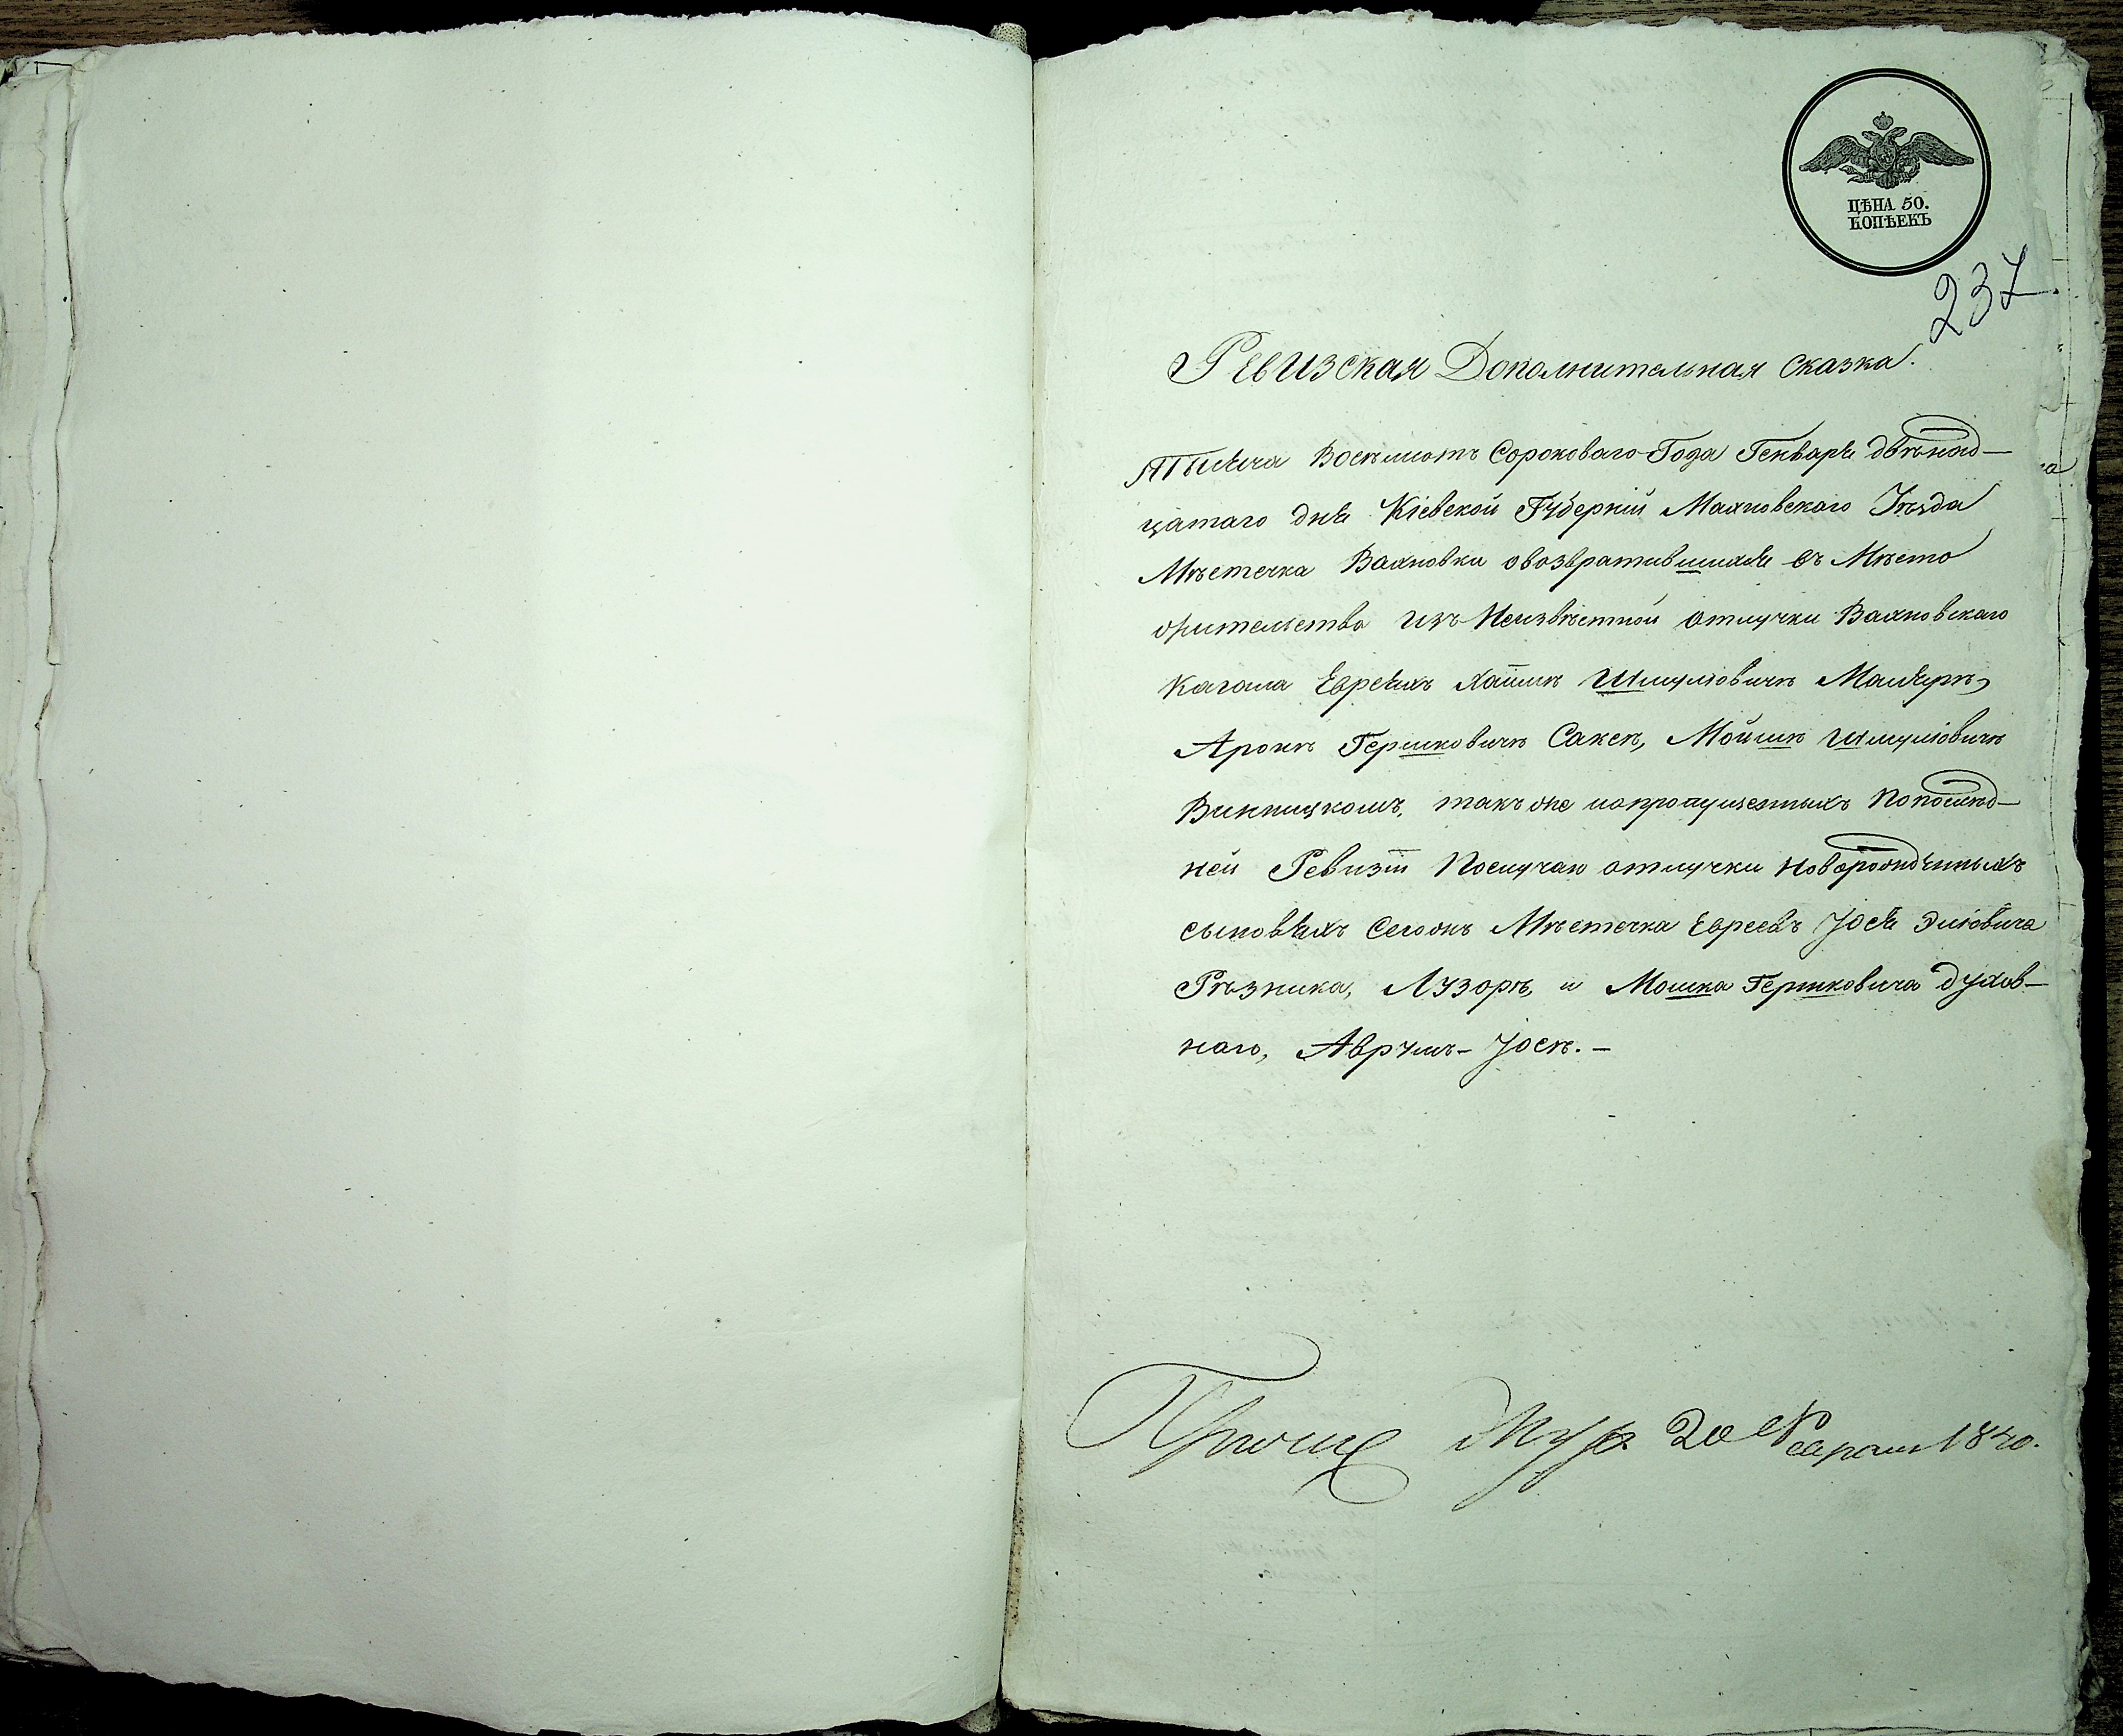 ЦѢНА 50.
КОПѢЕКЪ
237
Ревизская Дополнительная сказка.
Тысяча Восемьсотъ Сороковаго Года Генваря двѣнад-
цатаго дня Кіевской Губерніи Махновскаго Уѣзда
Мѣстечка Вахновки овозвратившихся въ Мѣсто
жительства изъ Неизвѣстной отлучки Вахновскаго
Кагала Евреяхъ Хаимѣ Шмулювичѣ
Аронѣ Гершковичѣ Саксѣ, Мошкѣ Шмулювичѣ
Винницкомъ, такъ же иопропущенныхъ Попослѣд-
ней Ревизіи Послучаю отлучки новорожденныхъ
сыновяхъ Сегожъ Мѣстечка Евреевъ Іося Элювича
Рѣзника, Лузорѣ, и Мошка Гершковича Духов-
наго, Аврумъ-Іосѣ.-
20 Февраля 1840.